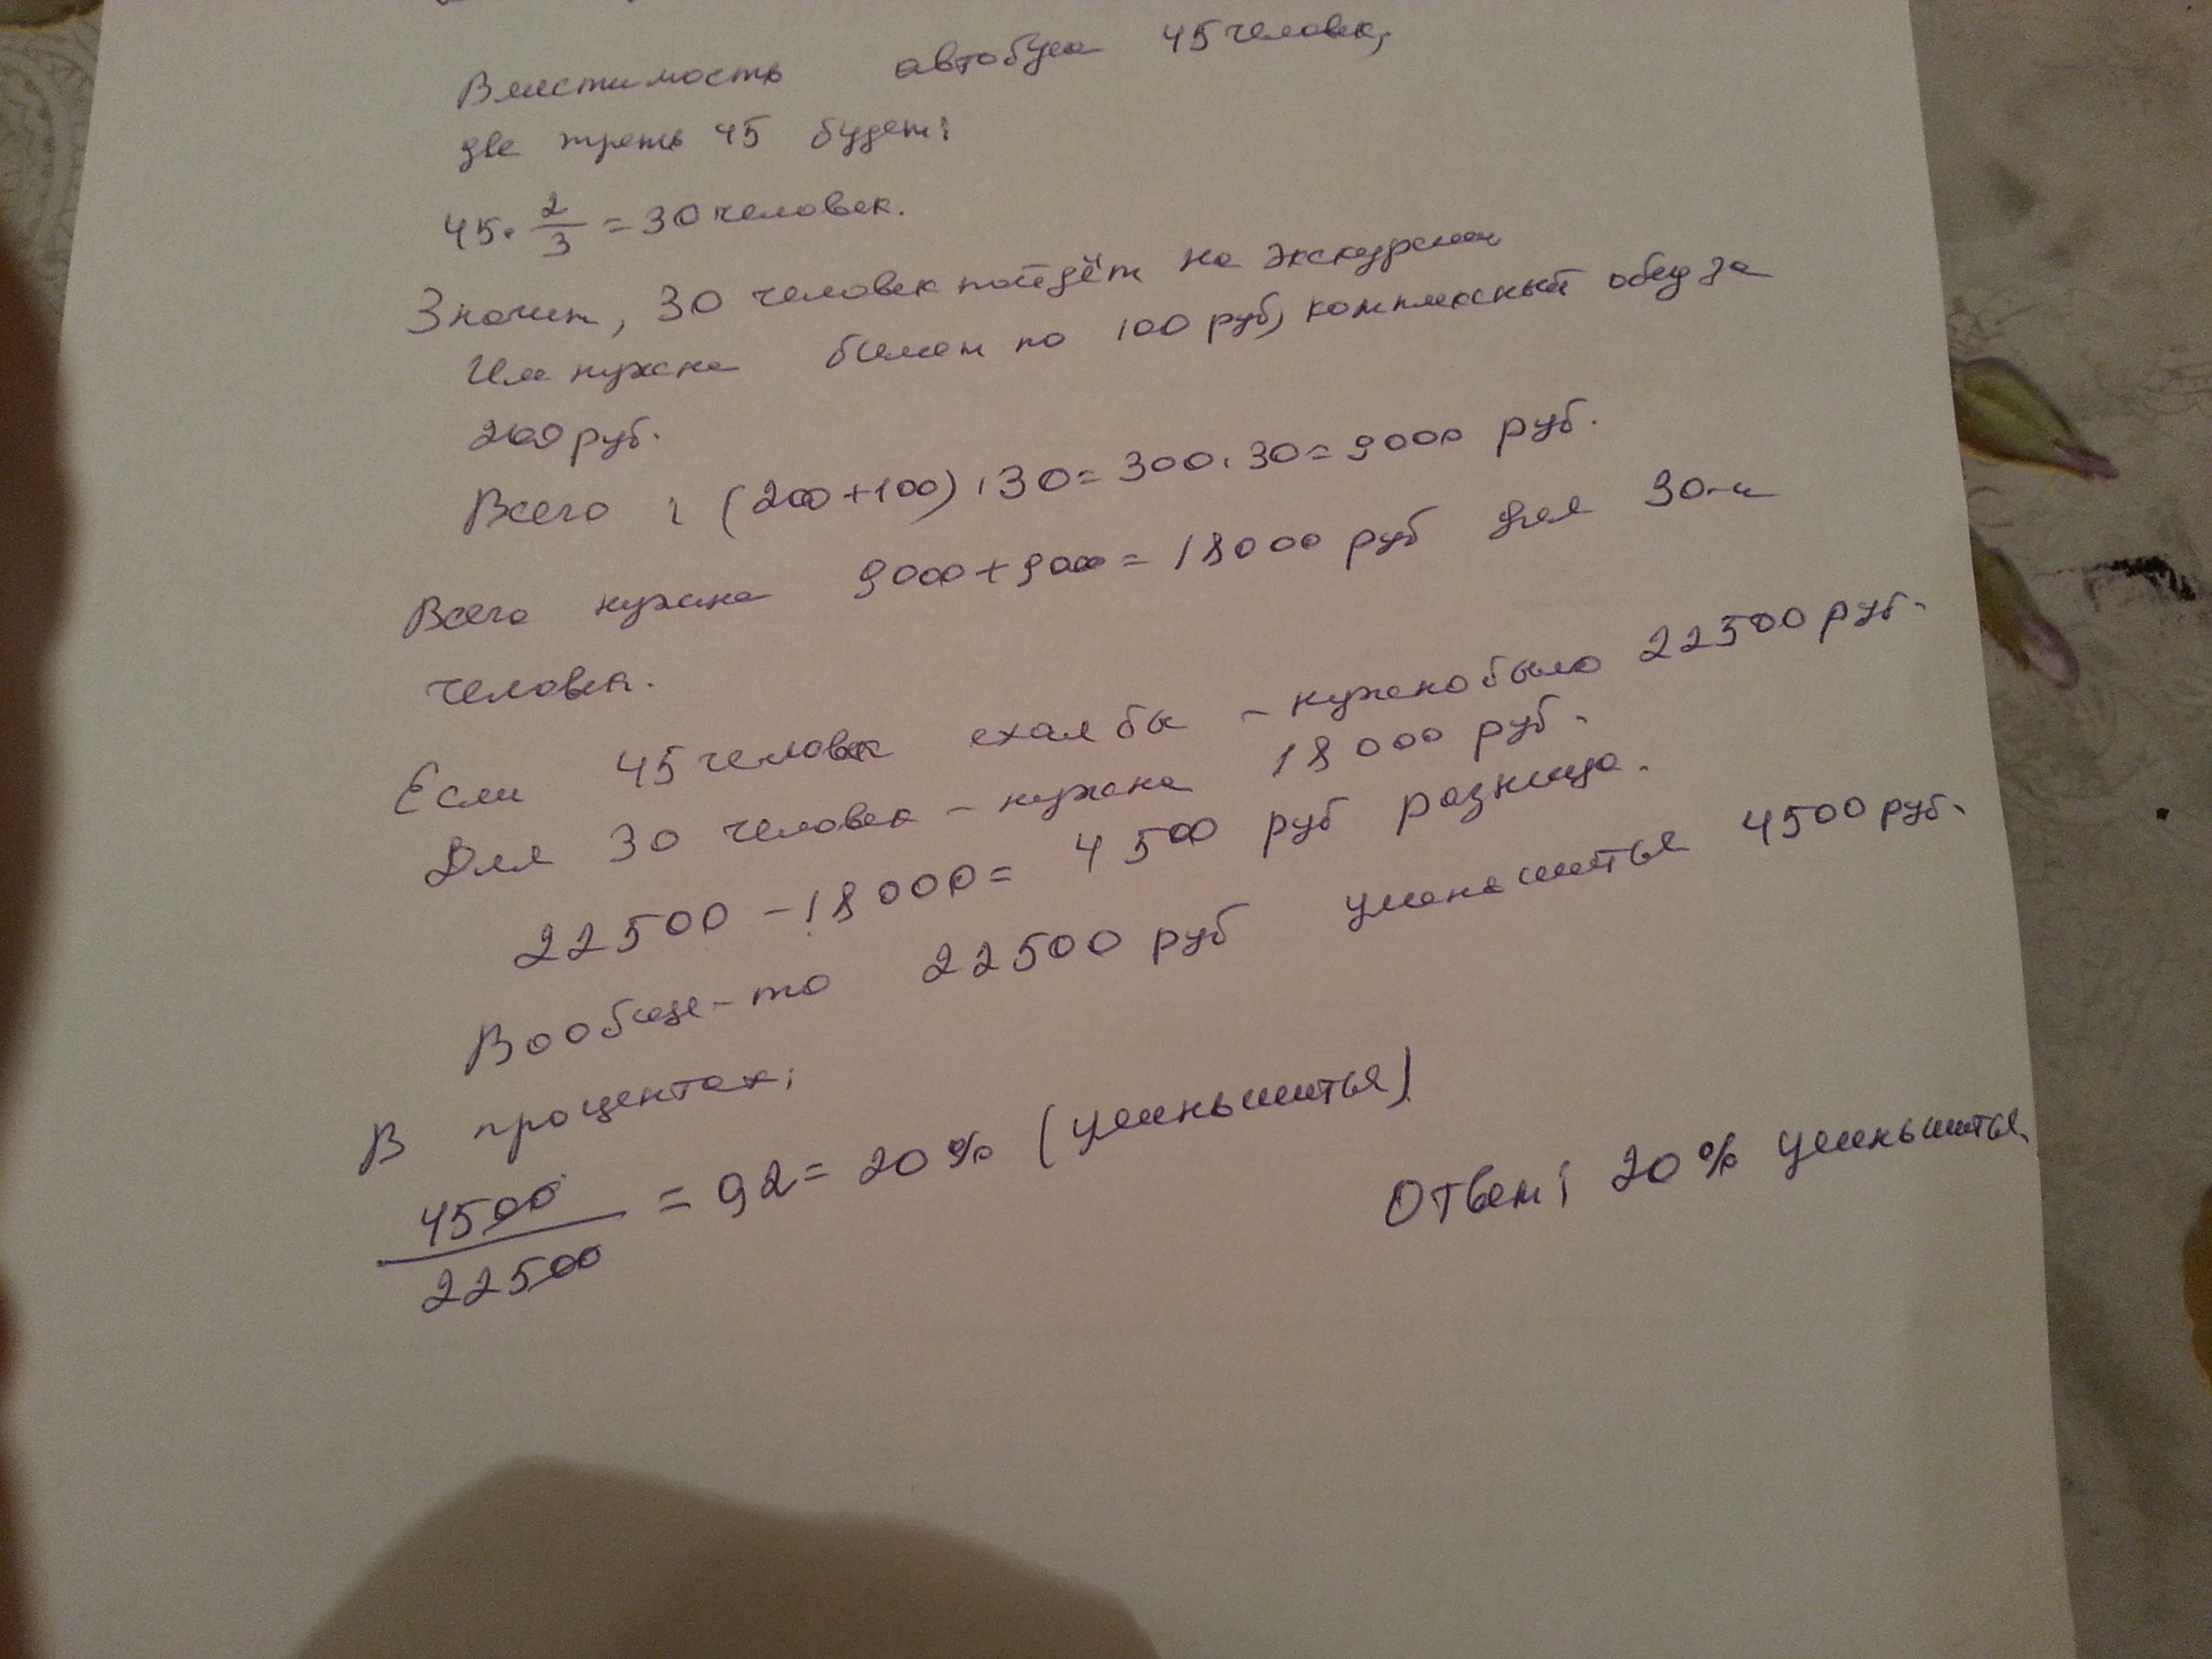 Вместимость автобуса 45 человек,
две треть 45 будет:
45 · 2/3 = 30 человек.
Значит, 30 человек пойдёт на экскурсии
Им нужна билет по 100 руб, комплексный обед за
200 руб.
Всего : (200+100) · 30 = 300 · 30 = 9000 руб.
Всего нужна 9000 + 9000 = 18000 руб для 30-и
человек.
Если 45 человек ехал бы - нужно было 22500 руб.
Для 30 человек - нужна 18000 руб.
22500 - 18000 = 4500 руб разница.
Вообще-то 22500 руб уменьшиться 4500 руб.
В процентах:
4500/22500 = 0,2 = 20% (уменьшиться)
Ответ: 20% уменьшиться.